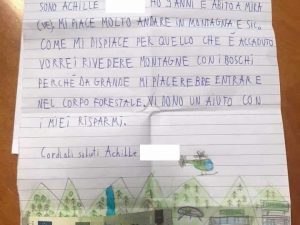 SONO ACHILLE HO 9 ANNI E ABITO A MIRA
(VE), MI PIACE MOLTO ANDARE IN MONTAGNA E SIC
COME MI DISPIACE PER QUELLO CHE È ACCADUTO
VORREI RIVEDERE MONTAGNE CON I BOSCHI
PERCHÉ DA GRANDE MI PIACEREBBE ENTRARE
NEL CORPO FORESTALE, VI DONO UN AIUTO CON
I MIEI RISPARMI.
Cordiali saluti Achille